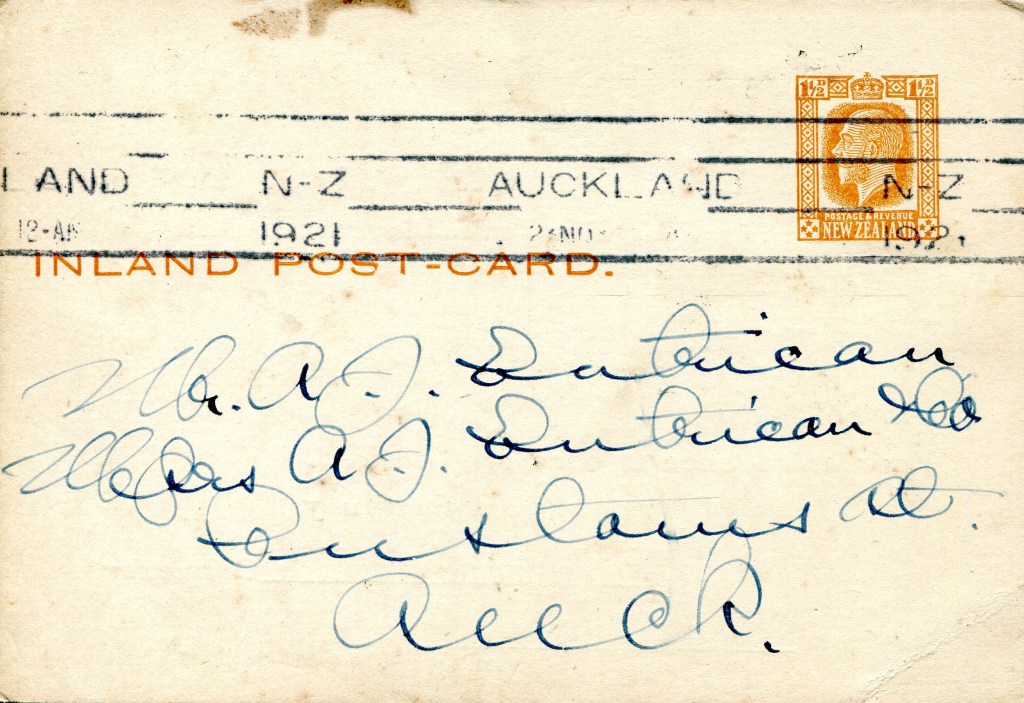 1½D 1½D
LAND N-Z AUCKLAND N-Z
12-AM 1921 1921
POSTAGE & REVENUE
NEW ZEALAND
INLAND POST-CARD.
Mr. A. J. Entrican
Messrs A. J. Entrican & Co
Customs St.
Auck.